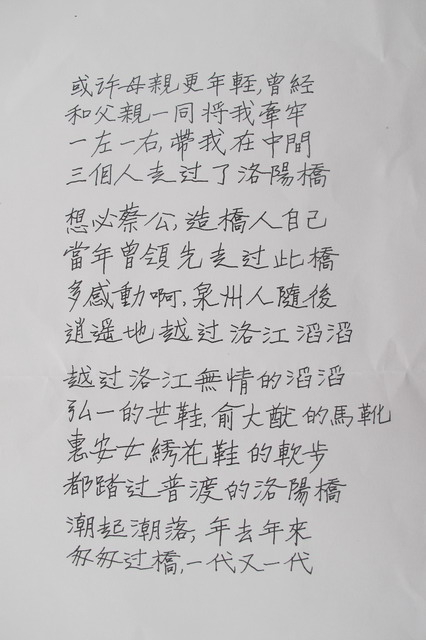 或许母親更年輕,曾経
和父親一同將我牽牢
一左一右,帶我在中間
三個人走过了洛陽橋
想必蔡公,造橋人自己
當年曾領先走过此橋
多感動啊,泉州人隨後
逍遥地越过洛江滔滔
越过洛江無情的滔滔
弘一的芒鞋,俞大猷的馬靴
惠安女綉花鞋的軟步
都踏过普渡的洛陽橋
潮起潮落,年去年來
匆匆过橋,一代又一代